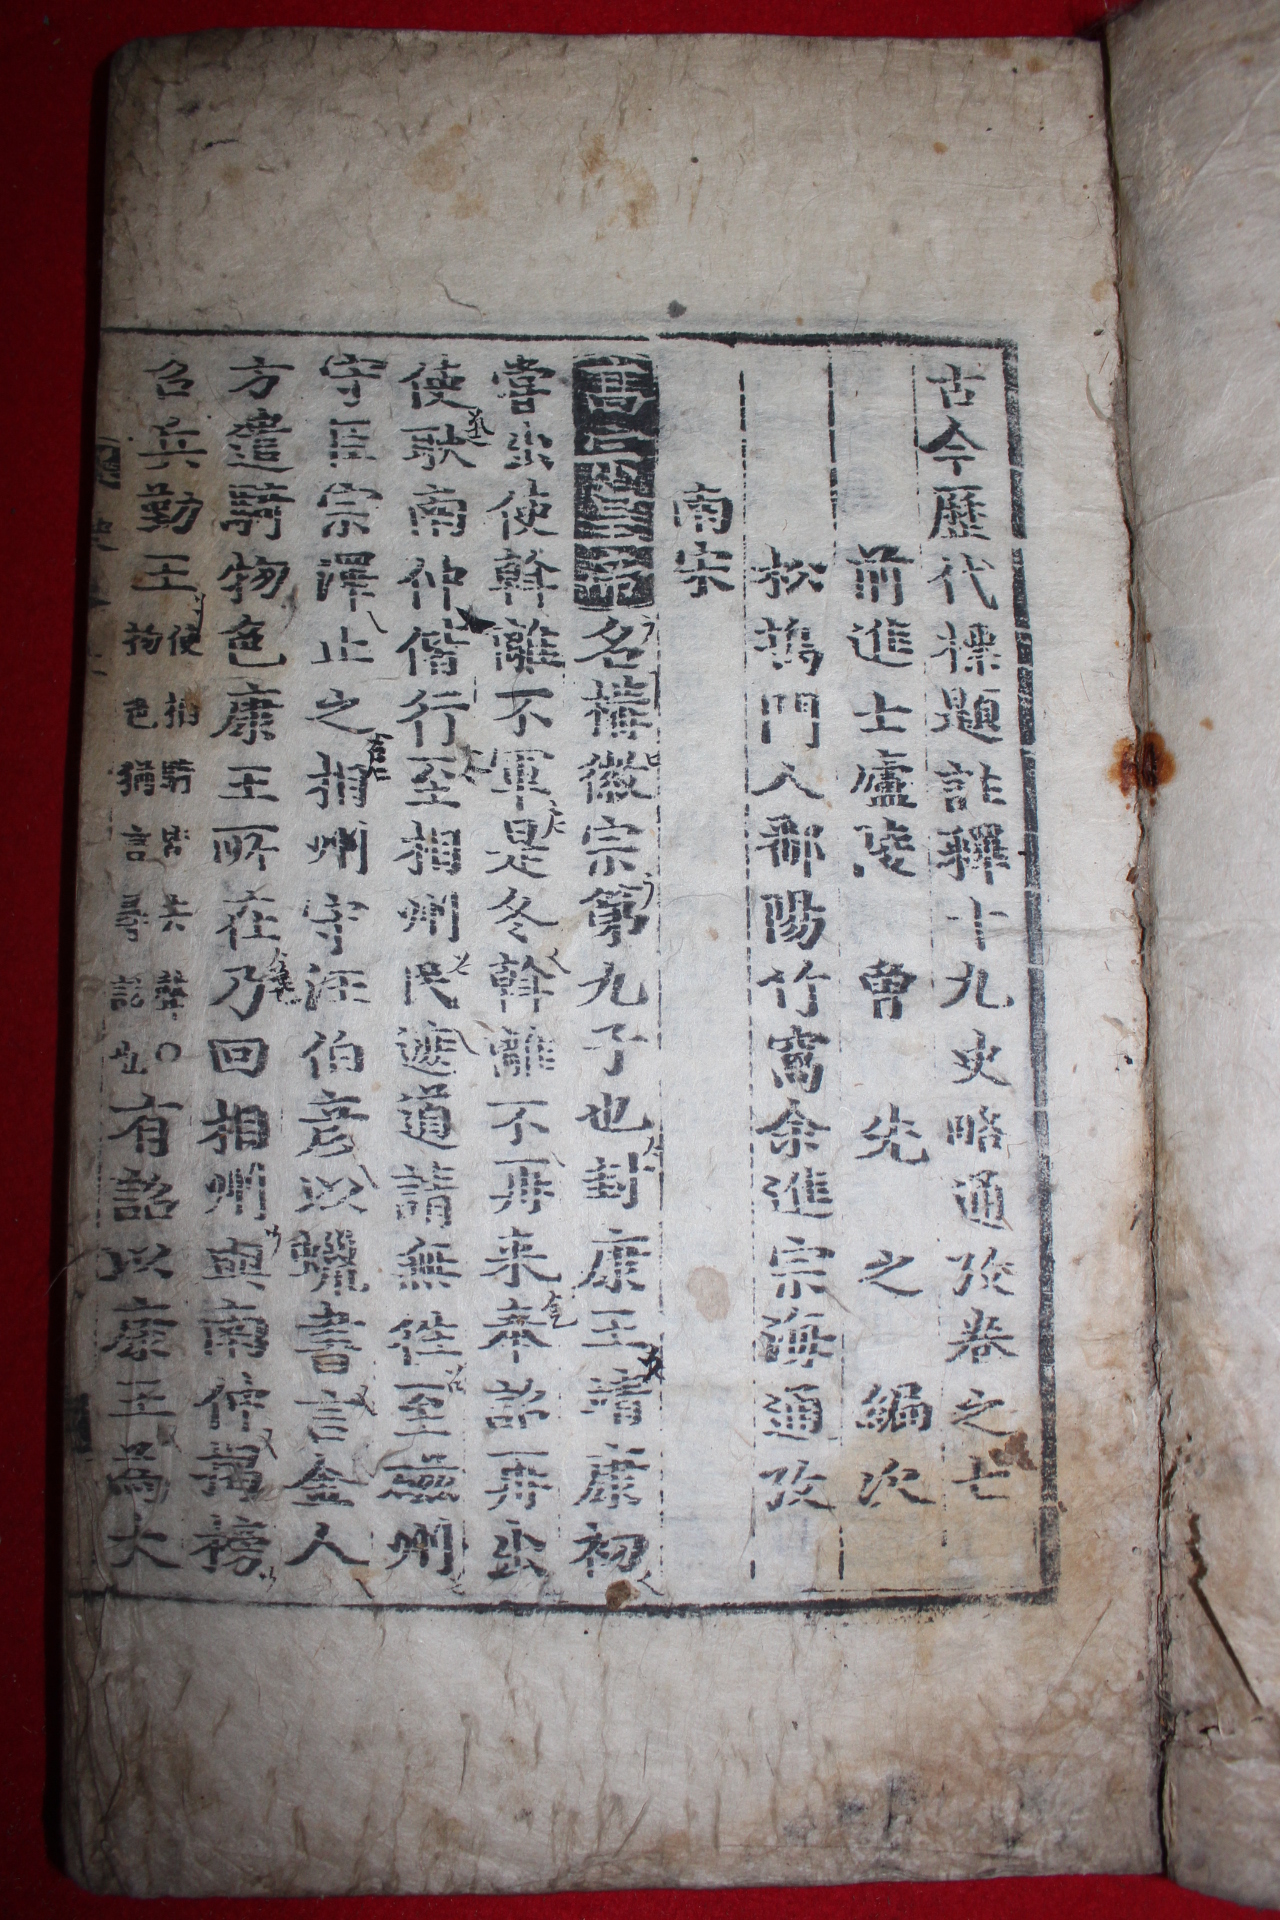 古今歷代標題註釋十九史略通攷卷之七
前進士廬陵 曾 先 之 編次
松塢門人鄱陽竹窩余進宗海通攷
南宋
高宗皇帝名構徽宗第九子也封康王靖康初
嘗出使斡離不軍是冬斡離不再来奉詔再出
使耿南仲偕行至相州民遮道請無往至磁州
守臣宗澤止之相州守汪伯彦以蠟書言金人
方遣騎物色康王所在乃回相州與南仲揭榜
召兵勤王
使相騎皆去聲○
物色猶言尋訪也
有詔以康王爲大